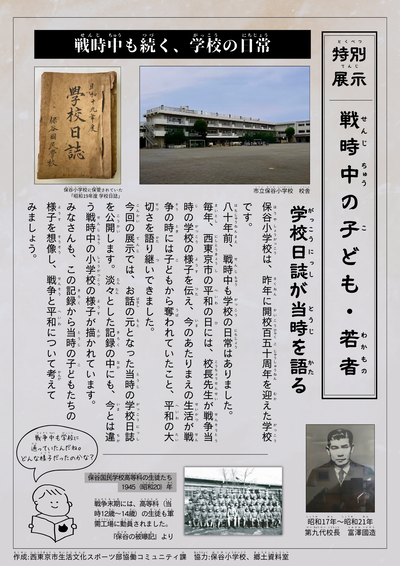 特別
展示
戦時中の子ども・若者
戦時中も続く、学校の日常
昭和十九年度
学校日誌
保谷国民学校
保谷小学校に保管されていた
「昭和19年度 学校日誌」
市立保谷小学校 校舎
学校日誌が当時を語る
保谷小学校は、昨年に開校百五十周年を迎えた学校
です。
八十年前、戦時中も学校の日常はありました。
毎年、西東京市の平和の日には、校長先生が戦争当
時の学校の様子を伝え、今のあたりまえの生活が戦
争の時には子どもから奪われていたこと、平和の大
切さを語り継いできました。
今回の展示では、お話の元となった当時の学校日誌
を公開します。淡々とした記録の中にも、今とは違
う戦時中の小学校の様子が描かれています。
みなさんも、この記録から当時の子どもたちの
様子を想像し、戦争と平和について考えて
みましょう。
戦争中も学校に
通っていたんだね。
どんな様子だったのかな?
保谷国民学校高等科の生徒たち
1945(昭和20)年
戦争末期には、高等科(当
時12歳~14歳)の生徒も軍
需工場に動員されました。
「保谷の被曝記」より
昭和17年~昭和21年
第九代校長 富澤國造
作成:西東京市生活文化スポーツ部協働コミュニティ課 協力:保谷小学校、郷土資料室